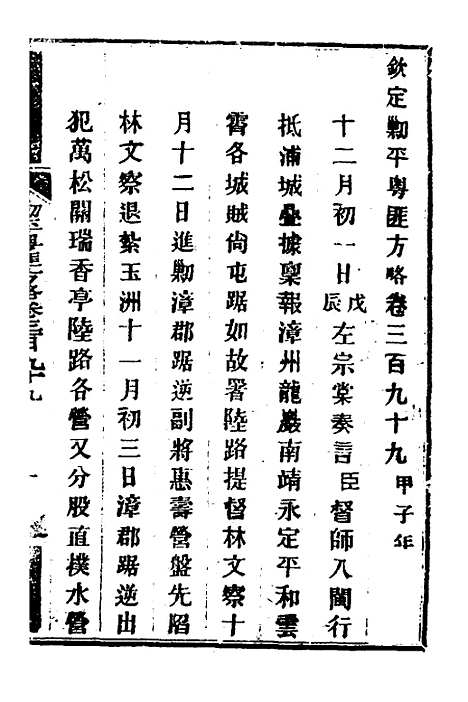 欽定勦平粤匪方略卷三百九十九甲子年
十二月初一日戊辰左宗棠奏言臣督師入閩行
抵浦城疊據稟報漳州龍巖南靖永定平和雲
霄各城賊尙屯踞如故署陸路提督林文察十
月十二日進勦漳郡踞逆副將惠壽營盤先陷
林文察退紮玉洲十一月初三日漳郡踞逆出
犯萬松關瑞香亭陸路各營又分股直撲水營